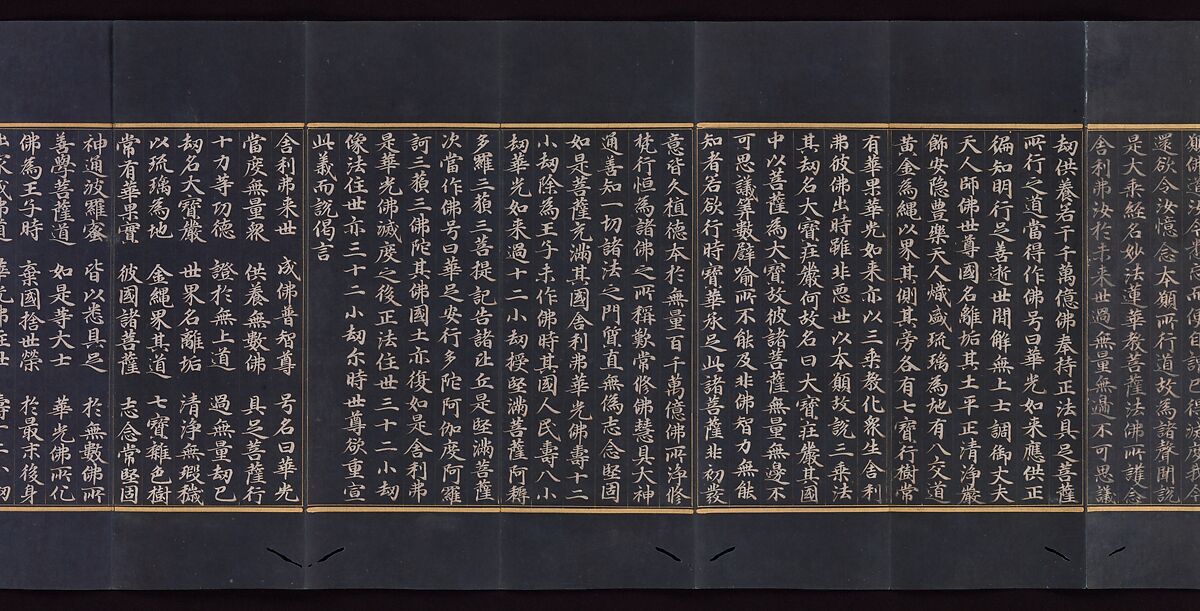 還欲令汝憶念本願所行道故為諸聲聞說
是大乘経名妙法蓮華教菩薩法佛所護念
舎利弗汝於未来世過無量無邊不可思議
劫供養若干千萬億佛奉持正法具足菩薩
所行之道當得作佛号曰華光如来應供正
徧知明行足善逝世間解無上士調御丈夫
天人師佛世尊國名離垢其土平正清淨嚴
飾安隐豊樂天人熾盛琉璃為地有八交道
黃金為繩以界其側其旁各有七寶行樹常
有華果華光如来亦以三乘教化眾生舎利
弗彼佛出時雖非惡世以本願故說三乘法
其劫名大寶莊嚴何故名曰大寶莊嚴其國
中以菩薩為大寶故彼諸菩薩無量無邊不
可思議算數譬喻所不能及非佛智力無能
知者若欲行時寶華承足此諸菩薩非初發
意皆久植德本於無量百千萬億佛所淨修
梵行恒為諸佛之所稱歎常修佛慧具大神
通善知一切諸法之門質直無偽志念堅固
如是菩薩充滿其國舎利弗華光佛壽十二
小劫除為王子未作佛時其國人民壽八小
劫華光如来過十二小劫授堅滿菩薩阿耨
多羅三藐三菩提記告諸比丘是堅滿菩薩
次當作佛号曰華足安行多陀阿伽度阿羅
訶三藐三佛陀其佛國土亦復如是舎利弗
是華光佛滅度之後正法住世三十二小劫
像法住世亦三十二小劫尓時世尊欲重宣
此義而說偈言
舎利弗来世 成佛普智尊 号名曰華光
當度無量眾 供養無數佛 具足菩薩行
十力等功德 證於無上道 過無量劫已
劫名大寶嚴 世界名離垢 清淨無瑕穢
以琉璃為地 金繩界其道 七寶雜色樹
常有華菓實 彼國諸菩薩 志念常堅固
神通波羅蜜 皆以悉具足 於無數佛所
善學菩薩道 如是等大士 華光佛所化
佛為王子時 棄國捨世榮 於最末後身